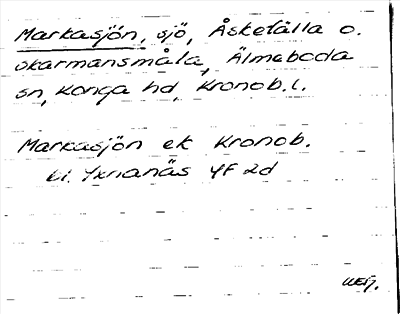 Markasjön, sjö, Åskefälla o.
skarmansmåla, Älmeboda
sn, Konga hd, Kronob.l.
Markasjön ek Kronob.
Yxnanäs YF 2d